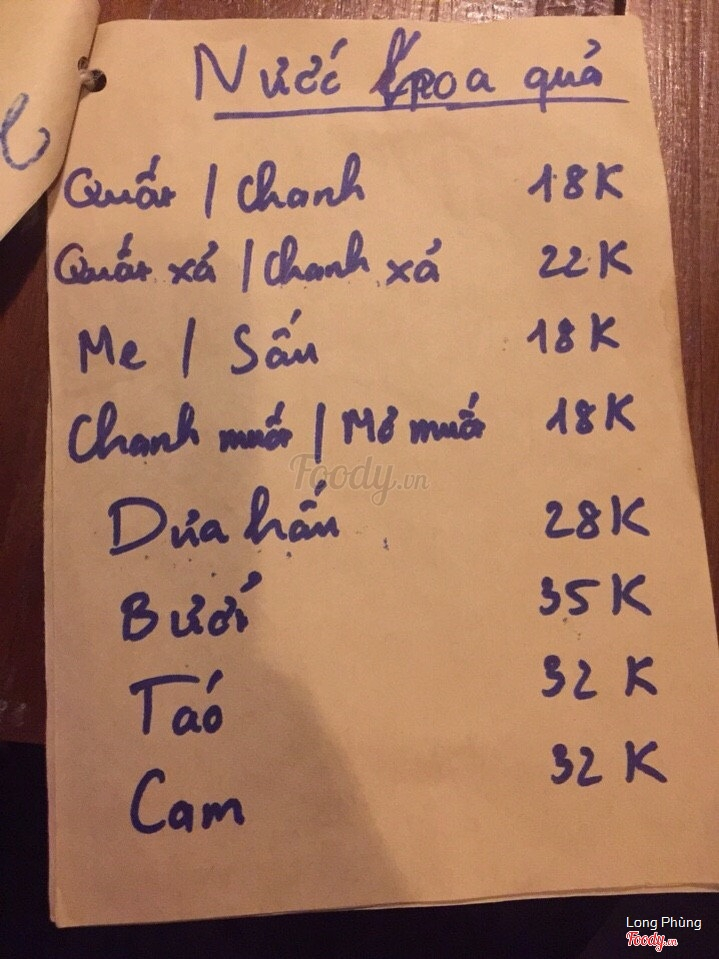 Nước hoa quả
Quất / Chanh 18K
Quất xả / Chanh xả 22K
Me / Sấu 18K
Chanh muối / Mơ muối 18K
Foody.vn
Dưa hấu 28K
Bưởi 35K
Táo 32K
Cam 32K
Long Phùng
Foody.vn